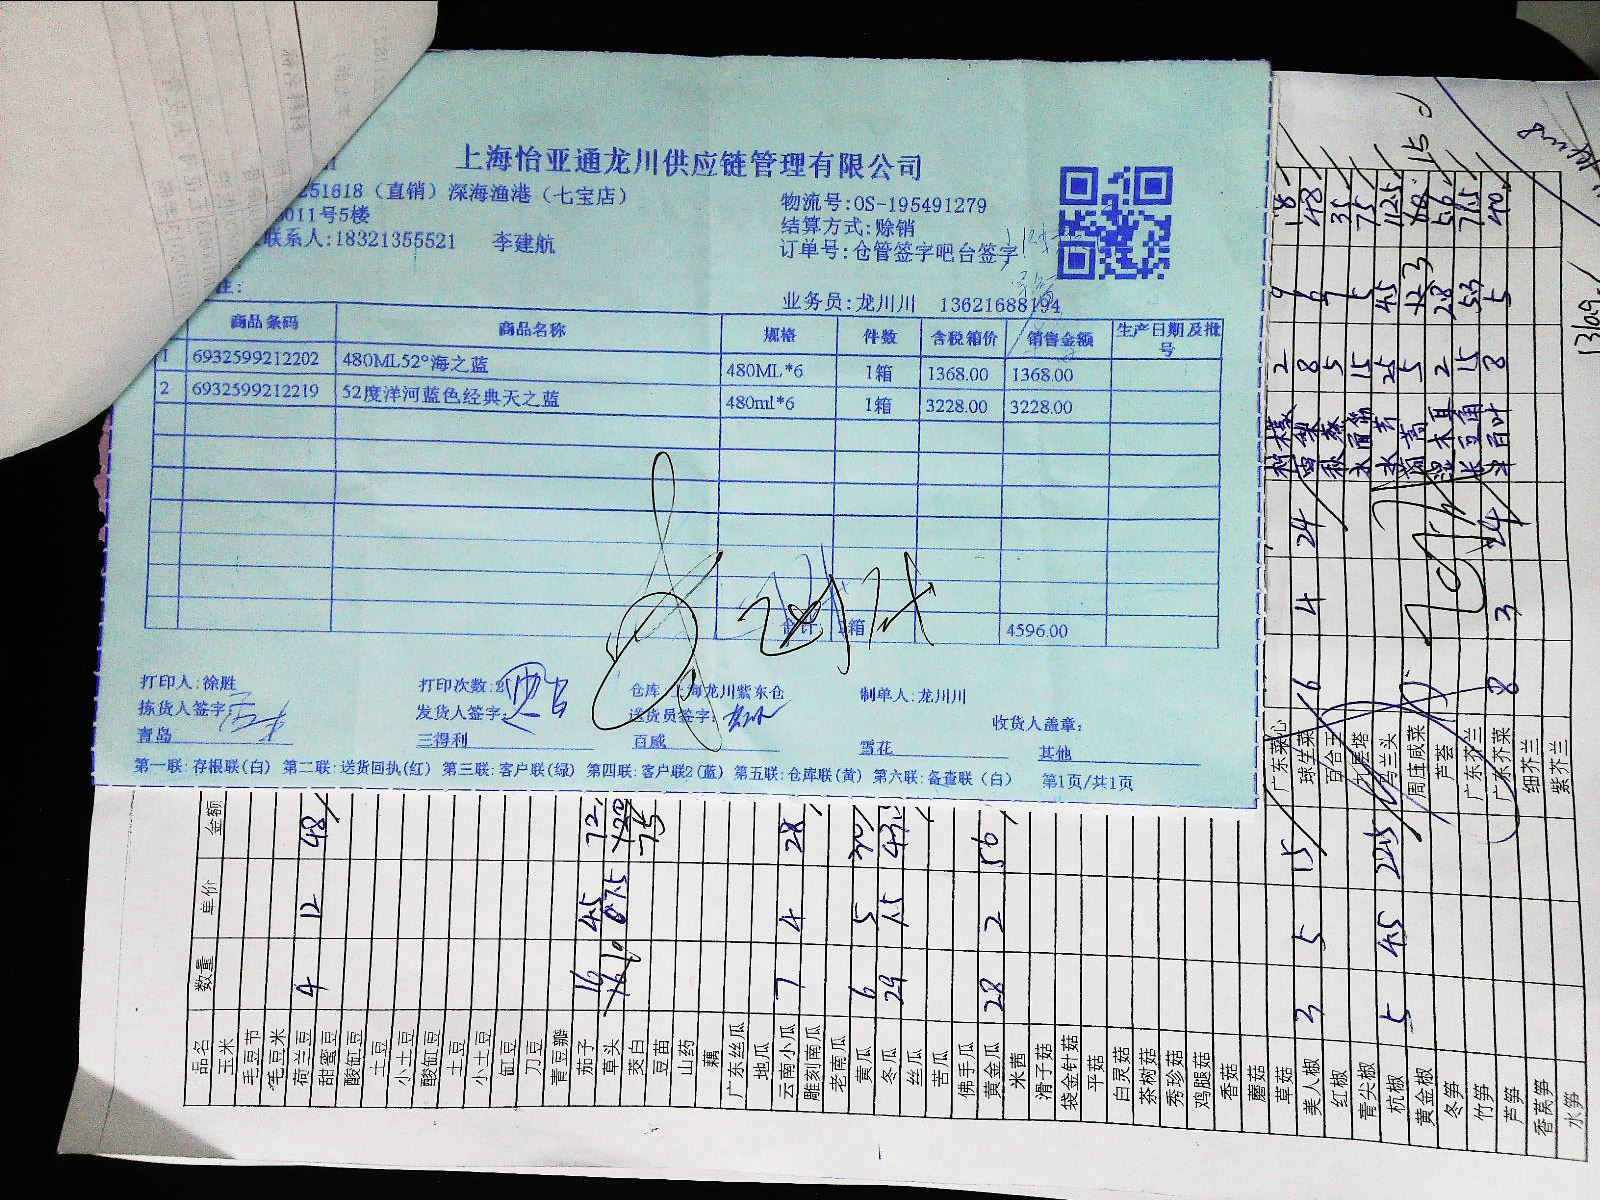 上海怡亚通龙川供应链管理有限公司
251618（直销）深海渔港（七宝店）
物流号:OS-195491279
011号5楼
结算方式:赊销
联系人:18321355521 李建航
订单号:仓管签字吧台签字
注:
业务员:龙川川 13621688194
商品条码 商品名称 规格 件数 含税箱价 销售金额 生产日期及批号
1 6932599212202 480ML52°海之蓝 480ML*6 1箱 1368.00 1368.00
2 6932599212219 52度洋河蓝色经典天之蓝 480ml*6 1箱 3228.00 3228.00
合计: 2箱 4596.00
打印人:徐胜 打印次数:2 仓库:上海龙川紫东仓 制单人:龙川川
拣货人签字: 发货人签字: 送货员签字: 收货人盖章:
青岛 三得利 百威 雪花 其他
第一联:存根联(白) 第二联:送货回执(红) 第三联:客户联(绿) 第四联:客户联2(蓝) 第五联:仓库联(黄) 第六联:备查联(白) 第1页/共1页
品名 数量 单价 金额
玉米
毛豆节
毛豆米
荷兰豆 4 12 48
甜蜜豆
酸缸豆
土豆
小土豆
酸缸豆
土豆
小土豆
缸豆
刀豆
青豆瓣
茄子 16 4.5 72
草头
茭白 75
豆苗
山药
藕
广东丝瓜
地瓜
云南小瓜 7 4 28
雕刻南瓜
老南瓜
黄瓜 6 5 30
冬瓜 29 1.5
丝瓜
苦瓜
佛手瓜
黄金瓜 28 2 56
米茜
滑子菇
袋金针菇
平菇
白灵菇
茶树菇
秀珍菇
鸡腿菇
香菇
蘑菇
草菇
美人椒 3 5 15
红椒
青尖椒
杭椒 5 4.5 22.5
黄金椒
冬笋
竹笋
芦笋
香莴笋
水笋
广东菜心
球生菜 6 4 24
百合王
九层塔
马兰头
周庄咸菜
芦荟
广东芥兰
广东芥菜 8 3 24
细芥兰
紫芥兰
2 9 18
8 6 48
5 7 35
15 5 75
水芹 25 4.5 112.5
5
湿木耳 2 28 56
长豆角 15
百叶 8 5 40
1369